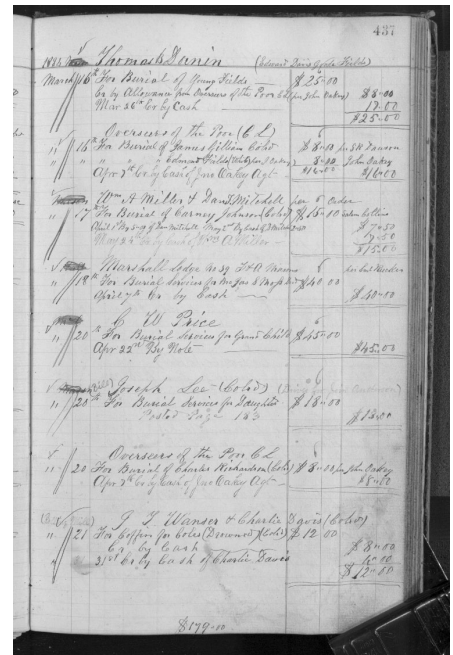 437
Thomas Dunin (Edward
March 16th For Burial of Young Fields $25.00
Cr by Allowance from Overseers of the Poor (per John Oakey) $8.00
Mar 26th Cr by Cash 17.00
$25.00
Overseers of the Poor (C L)
" 16th For Burial of James Gilliam Cold $8.00 per S H Dawson
" " " " Edward Fields John Oakey 8.00 John Oakey
Apr 7th Cr by Cash of Jno Oakey Agt $16.00 $16.00
Wm A Miller & Dan Mitchell per Order
" 17th For Burial of Carney Johnson (Cold) $15.00 Collins
April 1st by Dan Mitchell May 2nd By Cash of D Mitchell $7.50
May by Cash of Wm A Miller 7.50
$15.00
Marshall Lodge No 39
" 19th For Burial Services for $40.00
April 7th Cr by Cash $40.00
C W Price
" 20th For Burial Services for Grand Child $45.00
Apr 22nd By Note $45.00
Joseph Lee (Cold)
" 20th For Burial Services for Daughter $18.00
Posted Page 183 $18.00
Overseers of the Poor C L
" 20 For Burial of Charles Richardson (Cold) $8.00 per John Oakey
Apr 7th Cr by Cash of Jno Oakey Agt $8.00
Wanser & Charlie Davis (Cold)
" 21 For Coffin for Coles (Drowned) (Cold) $12.00
Cr by Cash $8.00
31st Cr by Cash of Charlie Davis 4.00
$12.00
$179.00